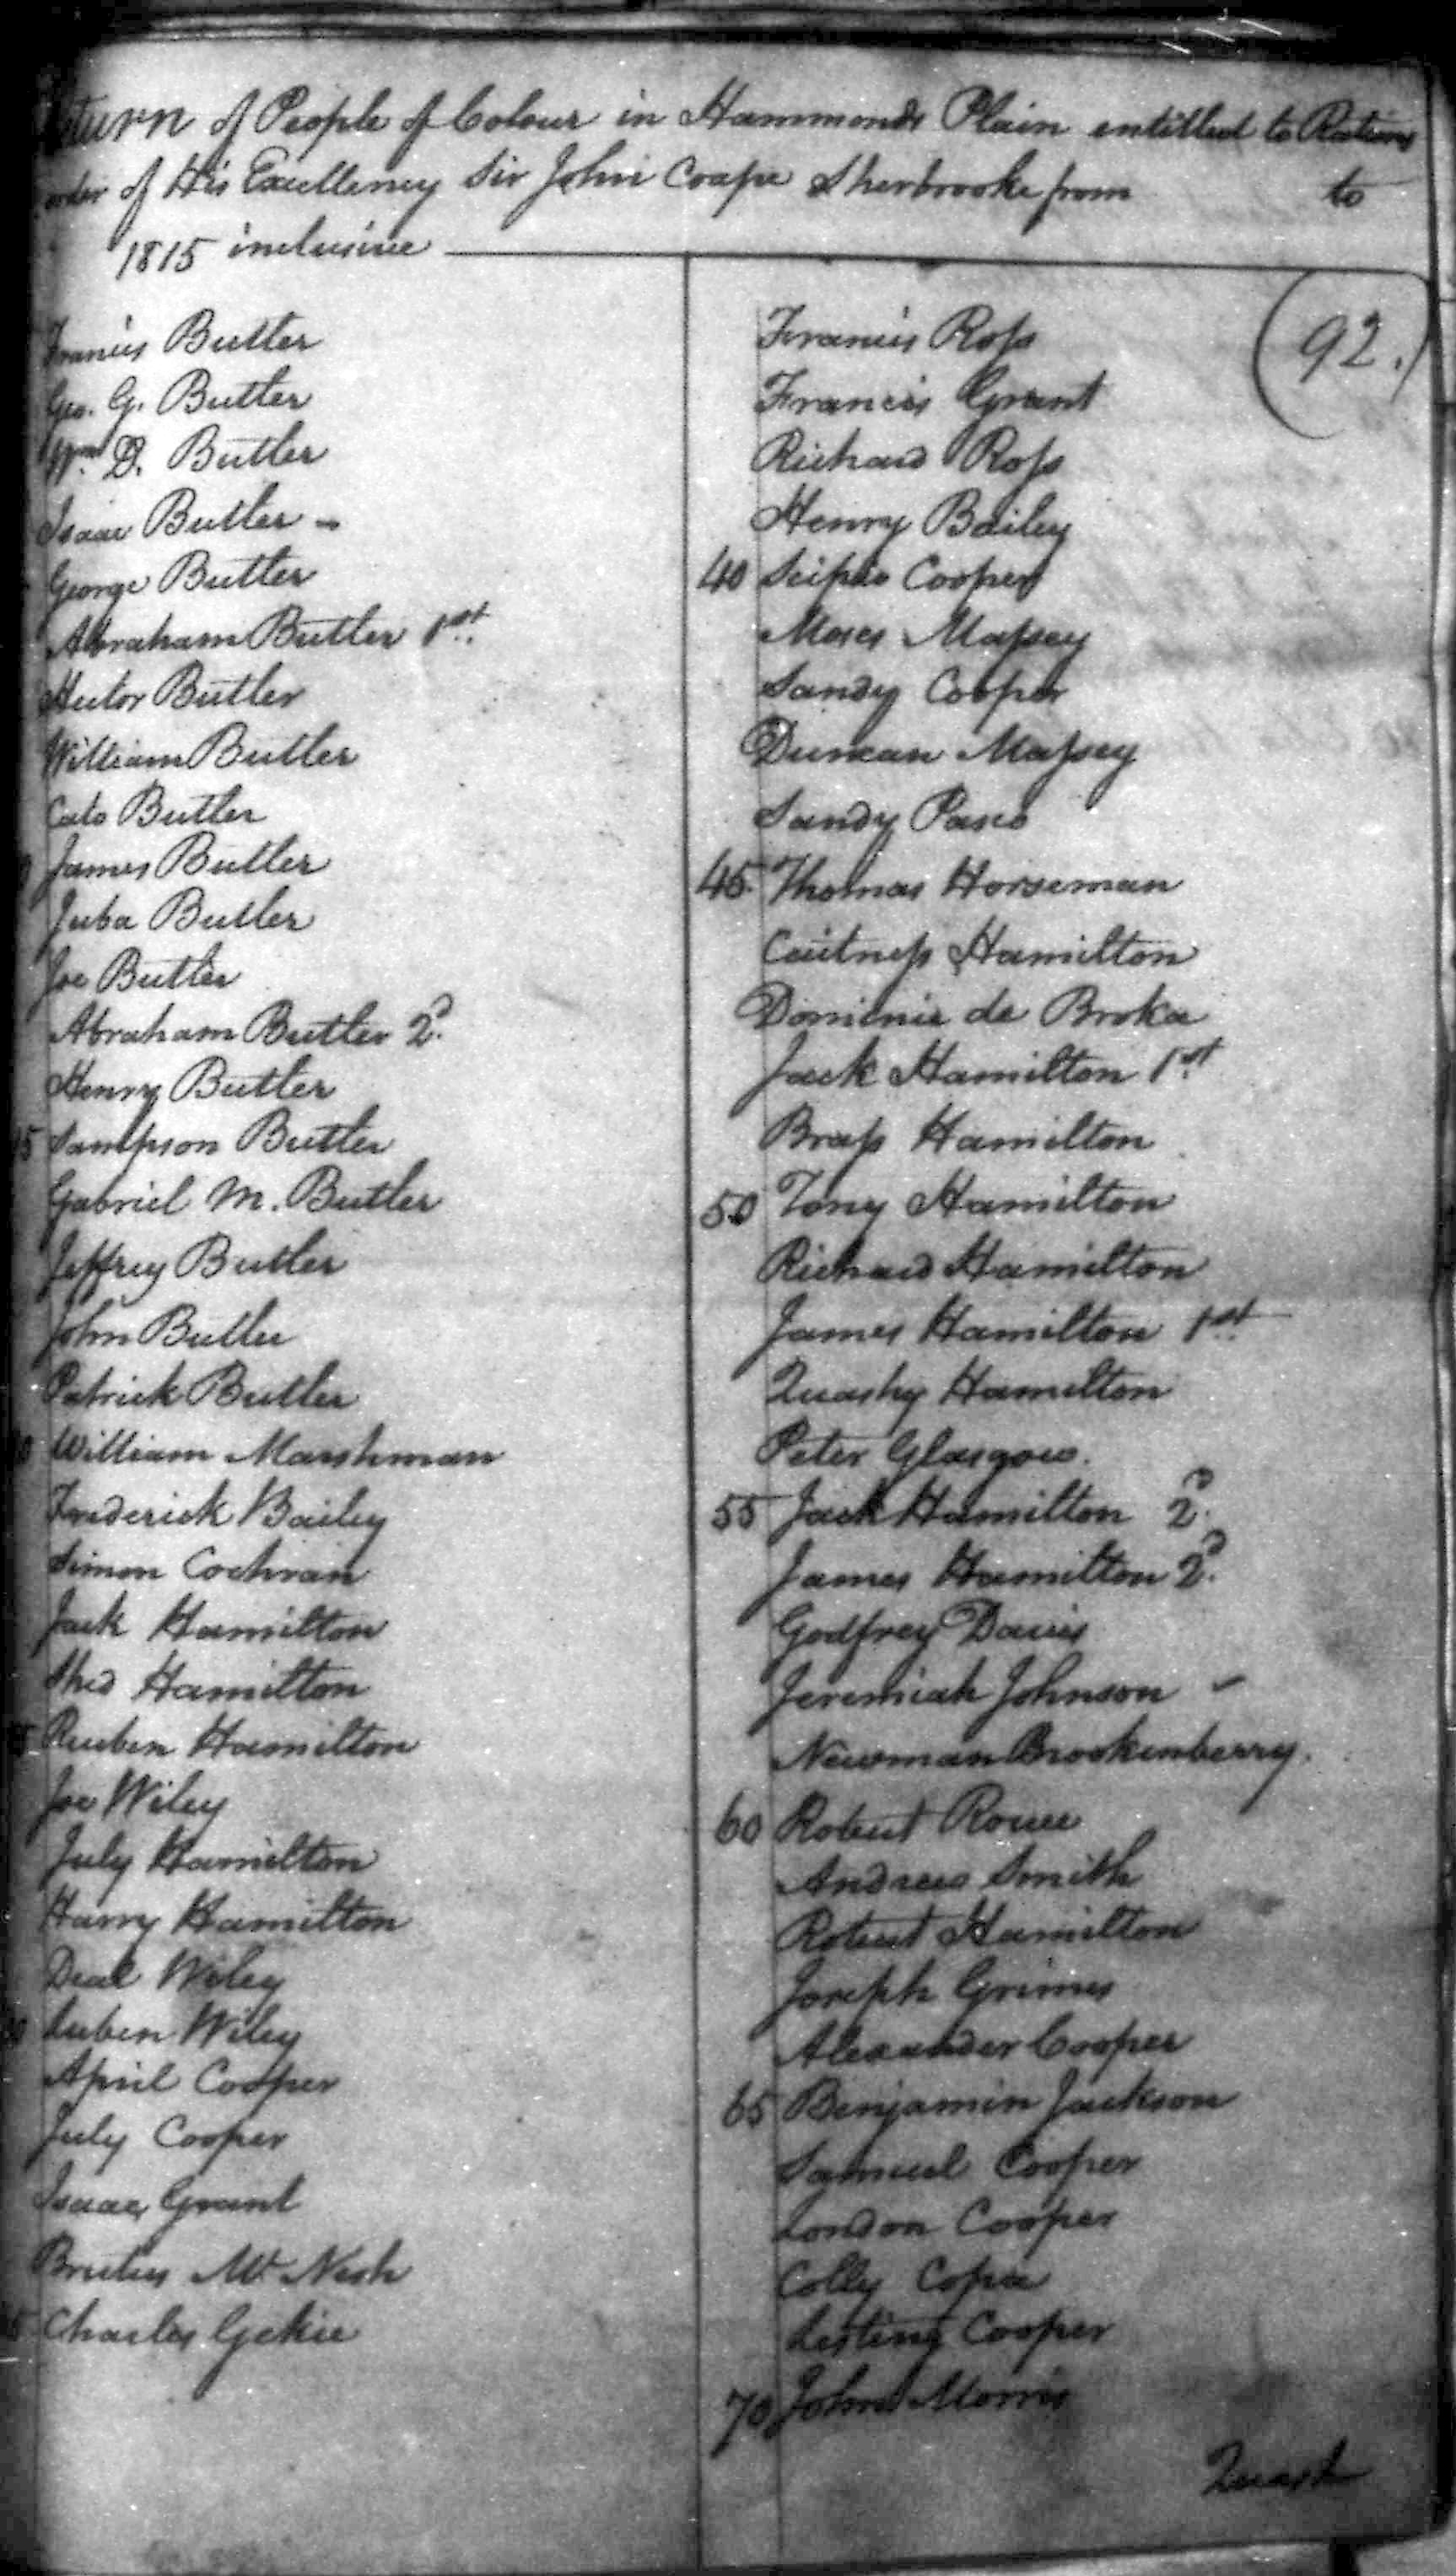 Return of People of Colour in Hammonds Plain entitled to Rations
order of His Excellency Sir John Coape Sherbrooke from to
1815 inclusive
Francis Butler
Geo. G. Butler
Wm. D. Butler
Isaac Butler -
George Butler
Abraham Butler 1st.
Hector Butler
William Butler
Cato Butler
James Butler
Juba Butler
Joe Butler
Abraham Butler 2d.
Henry Butler
15 Sampson Butler
Gabriel M. Butler
Jeffrey Butler
John Butler
Patrick Butler
William Marshman
Frederick Bailey
Simon Cochran
Jack Hamilton
Hamilton
Reuben Hamilton
Joe Wiley
July Hamilton
Harry Hamilton
Wiley
Wiley
April Cooper
July Cooper
Isaac Grant
Brutus Mc Nish
Charles
92.
Francis Ross
Francis Grant
Richard Ross
Henry Bailey
40 Scipio Cooper
Moses Massey
Sandy Cooper
Duncan Massey
Sandy
45. Thomas Horseman
Hamilton
Dominic de Broka
Jack Hamilton 1st.
Brass Hamilton
50 Tony Hamilton
Richard Hamilton
James Hamilton 1st.
Quashy Hamilton
Peter Glasgow.
55 Jack Hamilton 2d.
James Hamilton 2d.
Godfrey Davis
Jeremiah Johnson -
Newman Brookenberry.
60 Robert
Andrew Smith
Robert Hamilton
Joseph Grimes
Alexander Cooper
65 Benjamin Jackson
Samuel Cooper
London Cooper
Colly
Cooper
70 John Morris
Quash